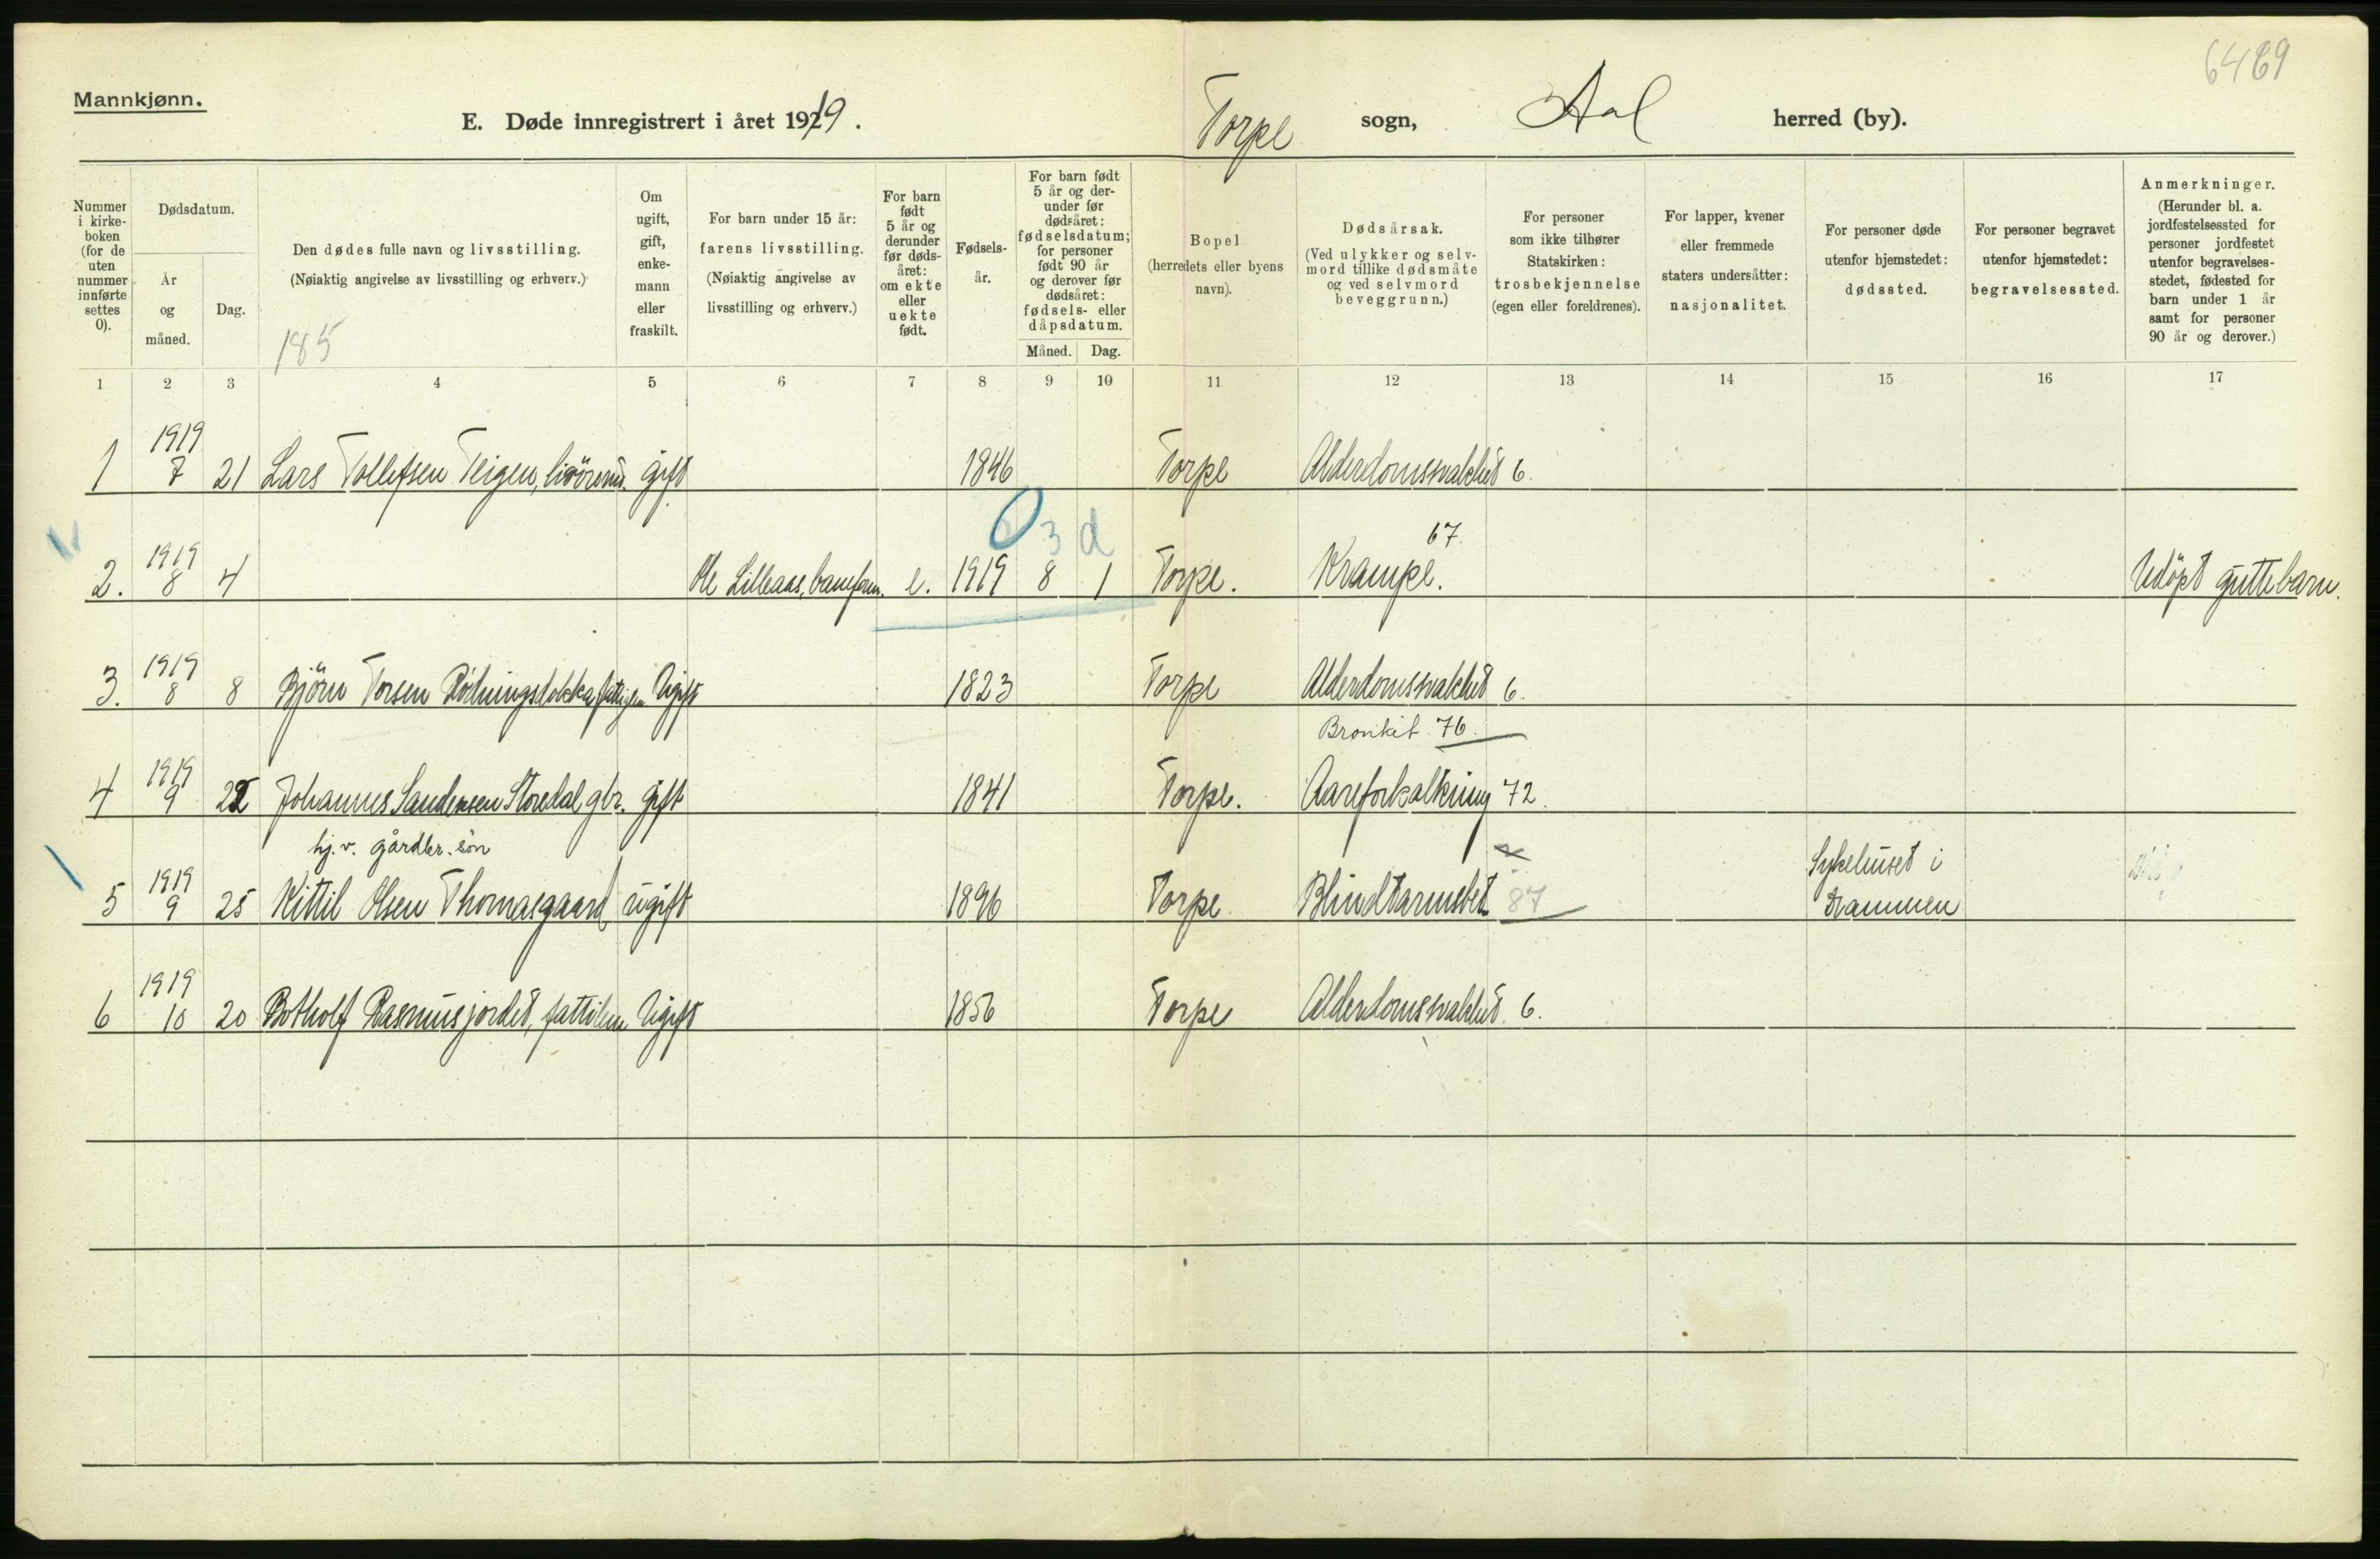 6489
Mannkjønn.
E. Døde innregistrert i året 1919.
Torpe sogn, Aal herred (by).
Nummer i kirkeboken (for de uten nummer innførte settes 0).
Dødsdatum.
År og måned.
Dag.
Den dødes fulle navn og livsstilling.
(Nøiaktig angivelse av livsstilling og erhverv.)
185
Om ugift, gift, enkemann eller fraskilt.
For barn under 15 år:
farens livsstilling.
(Nøiaktig angivelse av livsstilling og erhverv.)
For barn født 5 år og derunder før dødsåret: om ekte eller uekte født.
Fødselsår.
For barn født 5 år og derunder før dødsåret: fødselsdatum; for personer født 90 år og derover før dødsåret: fødsels- eller dåpsdatum.
Måned. Dag.
Bopel
(herredets eller byens navn).
Dødsårsak.
(Ved ulykker og selvmord tillike dødsmåte og ved selvmord beveggrunn.)
For personer som ikke tilhører Statskirken: trosbekjennelse (egen eller foreldrenes).
For lapper, kvener eller fremmede staters undersåtter: nasjonalitet.
For personer døde utenfor hjemstedet: dødssted.
For personer begravet utenfor hjemstedet: begravelsessted.
Anmerkninger.
(Herunder bl. a. jordfestelsessted for personer jordfestet utenfor begravelsesstedet, fødested for barn under 1 år samt for personer 90 år og derover.)
1 2 3 4 5 6 7 8 9 10 11 12 13 14 15 16 17
1 1919 7 21 Lars Tollefsen Teigen, gift 1846 Torpe Alderdomssvakhet 6.
0 3 d
2. 1919 8 4 Ole Lilleaas, e. 1919 8 1 Torpe. Krampe. 67. Udöpt guttebarn.
3. 1919 8 8 Björn Torsen Ugift 1823 Torpe Alderdomssvakhet 6.
Bronkit 76.
4 1919 9 22 Johannes Sandersen Storedal gbr. gift 1841 Torpe. Aareforkalkning 72.
hj. v. gårdbr. søn
5 1919 9 25 Kittil Olsen Thomasgaard ugift 1896 Torpe Blindtarmsbet. 87 Sykehuset i Drammen
6 1919 10 20 Botholf Rasmusjordet, Ugift 1856 Torpe Alderdomssvakhet. 6.